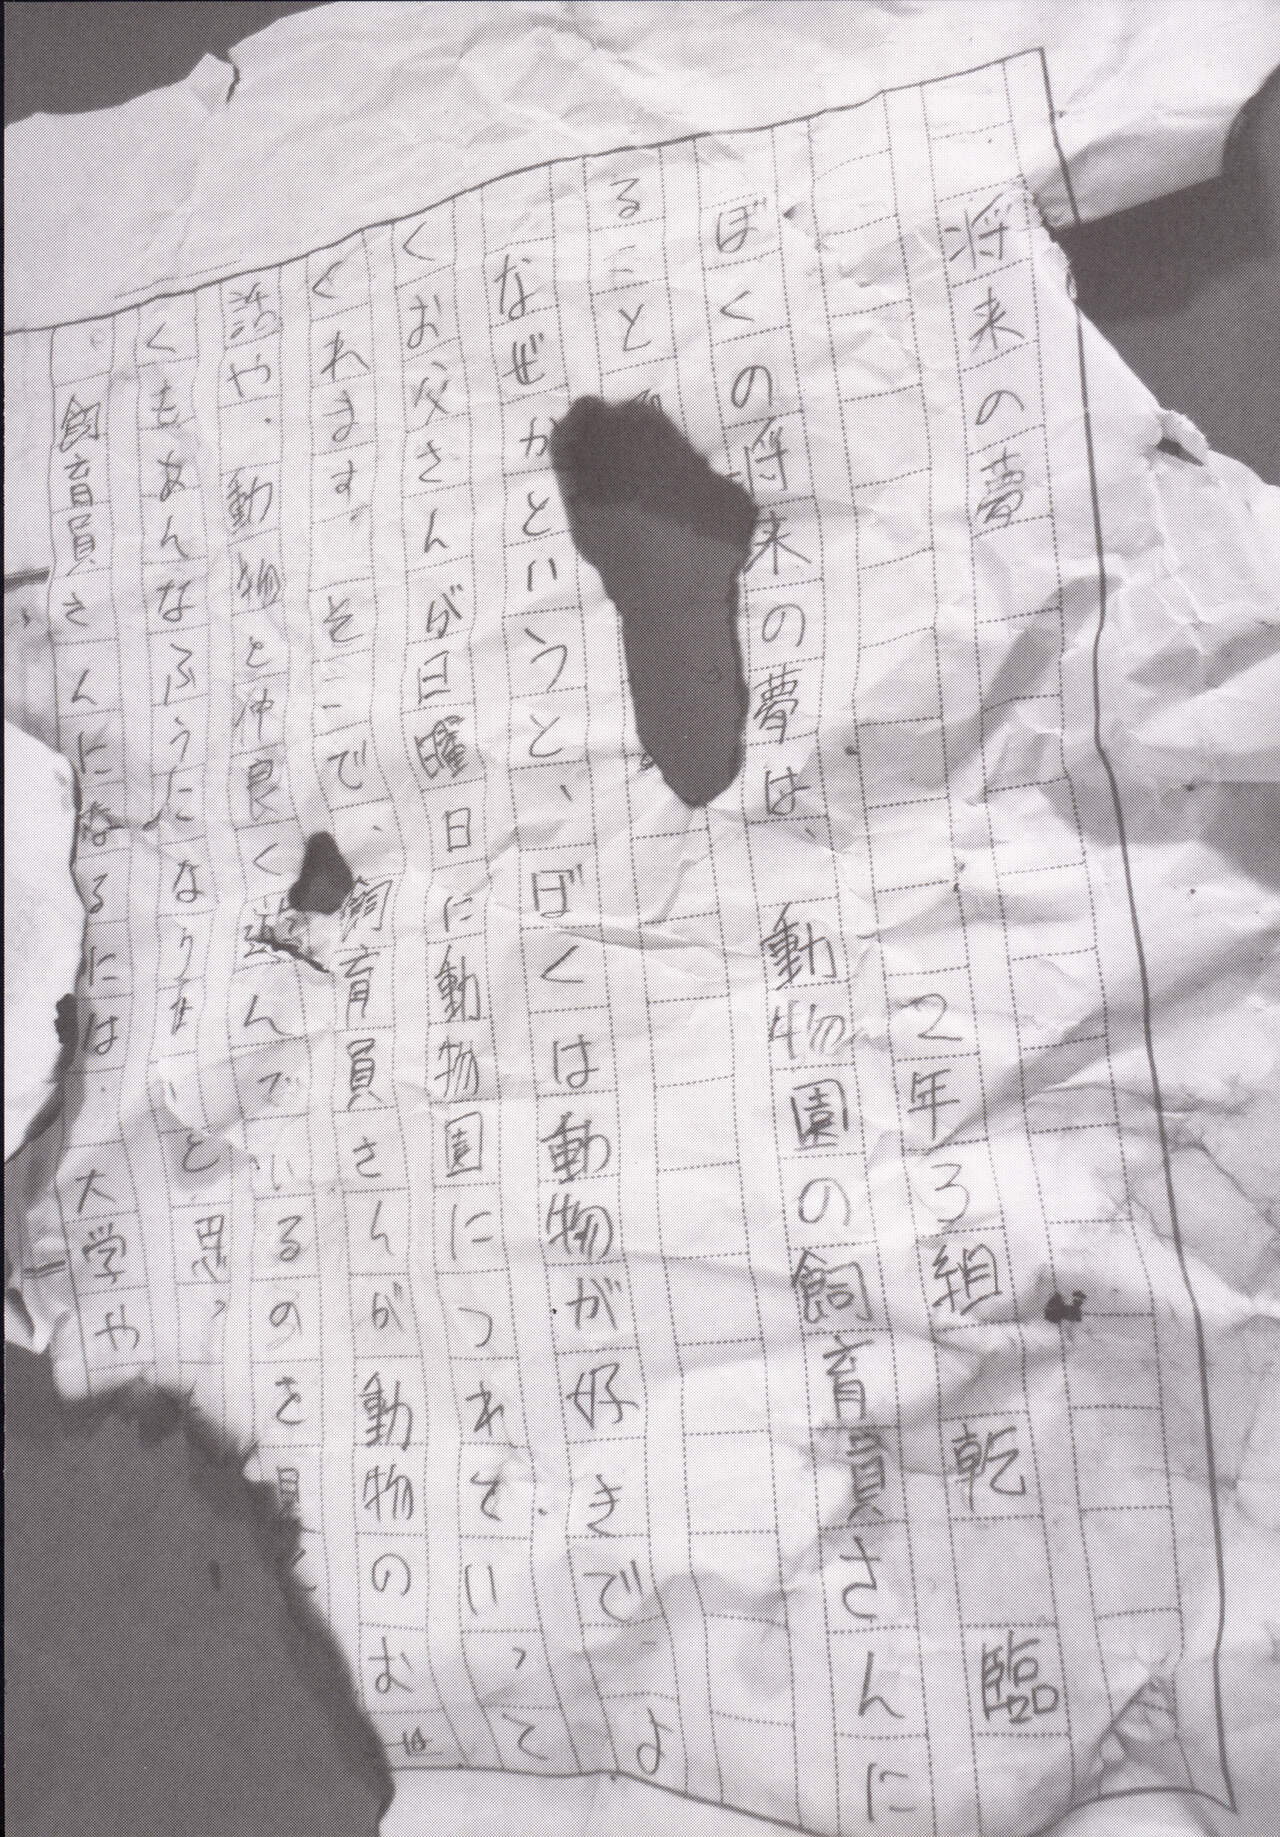 将来の夢
2年3組 乾 臨
ぼくの将来の夢は、動物園の飼育員さんに
ること
なぜかというと、ぼくは動物が好きで、よ
くお父さんが日曜日に動物園につれていって
くれます。そこで、飼育員さんが動物のお世
話や、動物と仲良く遊んでいるのを見
くもあんなふうになりたいと思っ
飼育員さんになるには、大学や